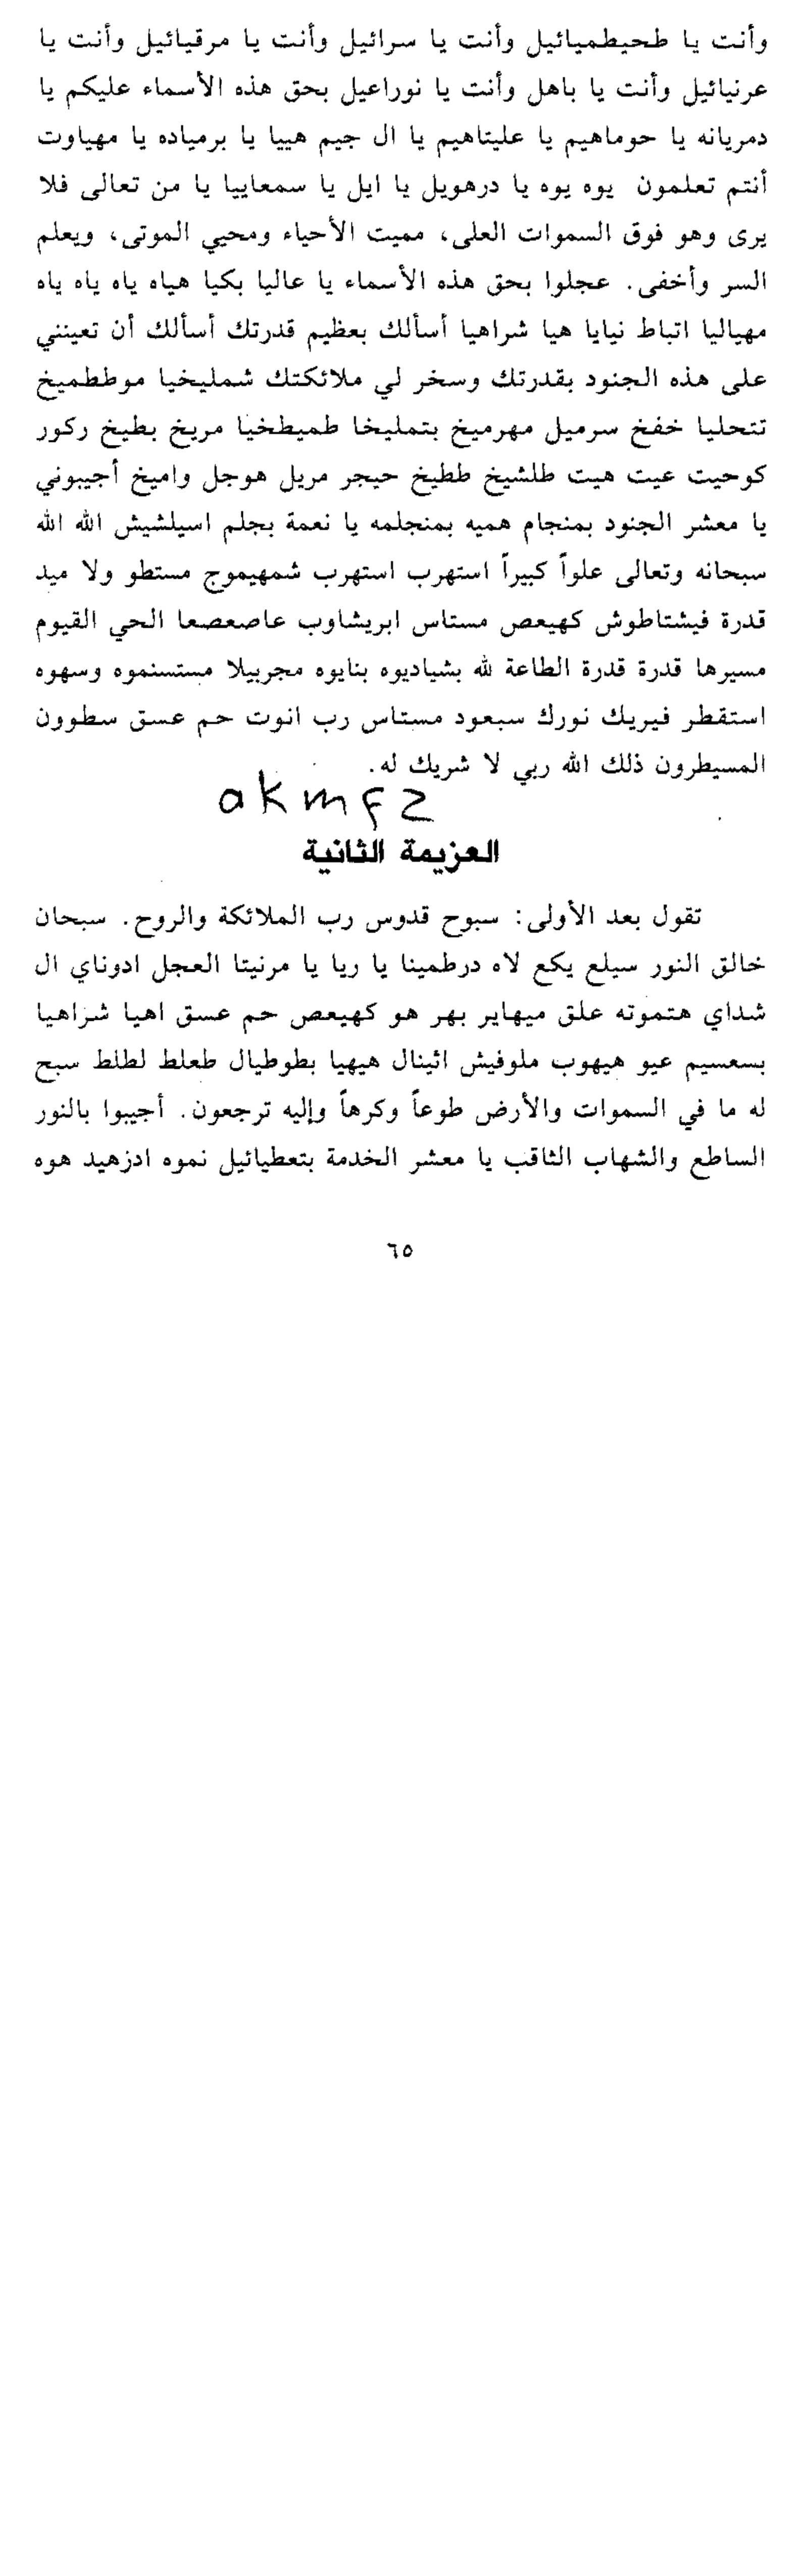 وأنت يا طحيطميائيل وأنت يا سرائيل وأنت يا مرقيائيل وأنت يا
عرنيائيل وأنت يا باهل وأنت يا نوراعيل بحق هذه الأسماء عليكم يا
دمريانه يا حوماهيم يا عليتاهيم يا ال جيم هييا يا برمياده يا مهياوت
أنتم تعلمون يوه يوه يا درهويل يا ايل يا سمعاييا يا من تعالى فلا
يرى وهو فوق السموات العلى، مميت الأحياء ومحيي الموتى، ويعلم
السر وأخفى. عجلوا بحق هذه الأسماء يا عاليا بكيا هياه ياه ياه ياه
مهياليا اتباط نيايا هيا شراهيا أسألك بعظيم قدرتك أسألك أن تعينني
على هذه الجنود بقدرتك وسخر لي ملائكتك شمليخيا موططميخ
تتحليا خفخ سرميل مهرميخ بتمليخا طميطخيا مريخ بطيخ ركور
كوحيت عيت هيت طلشيخ ططيخ حيجر مريل هوجل واميخ أجيبوني
يا معشر الجنود بمنجام هميه بمنجلمه يا نعمة بجلم اسيلشيش الله الله
سبحانه وتعالى علواً كبيراً استهرب استهرب شمهيموج مستطو ولا ميد
قدرة فيشتاطوش كهيعص مستاس ابريشاوب عاصعصعا الحي القيوم
مسيرها قدرة قدرة الطاعة لله بشياديوه بنايوه مجربيلا مستسنموه وسهوه
استقطر فيريك نورك سبعود مستاس رب انوت حم عسق سطوون
المسيطرون ذلك الله ربي لا شريك له.
akmfz
العزيمة الثانية
تقول بعد الأولى: سبوح قدوس رب الملائكة والروح. سبحان
خالق النور سيلع يكع لاه درطمينا يا ربا يا مرنيتا العجل ادوناي ال
شداي هتموته علق ميهاير بهر هو كهيعص حم عسق اهيا شراهيا
بسعسيم عيو هيهوب ملوفيش اثينال هيهيا بطوطيال طعلط لطلط سبح
له ما في السموات والأرض طوعاً وكرهاً وإليه ترجعون. أجيبوا بالنور
الساطع والشهاب الثاقب يا معشر الخدمة بتعطيائيل نموه ادزهيد هوه
٦٥